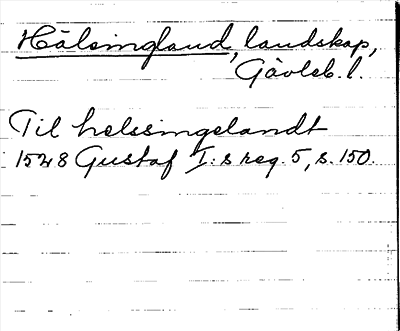 Hälsingland, landskap,
Gävleb. l.
Til helssingelandt
1528 Gustaf I:s reg. 5, s. 150.